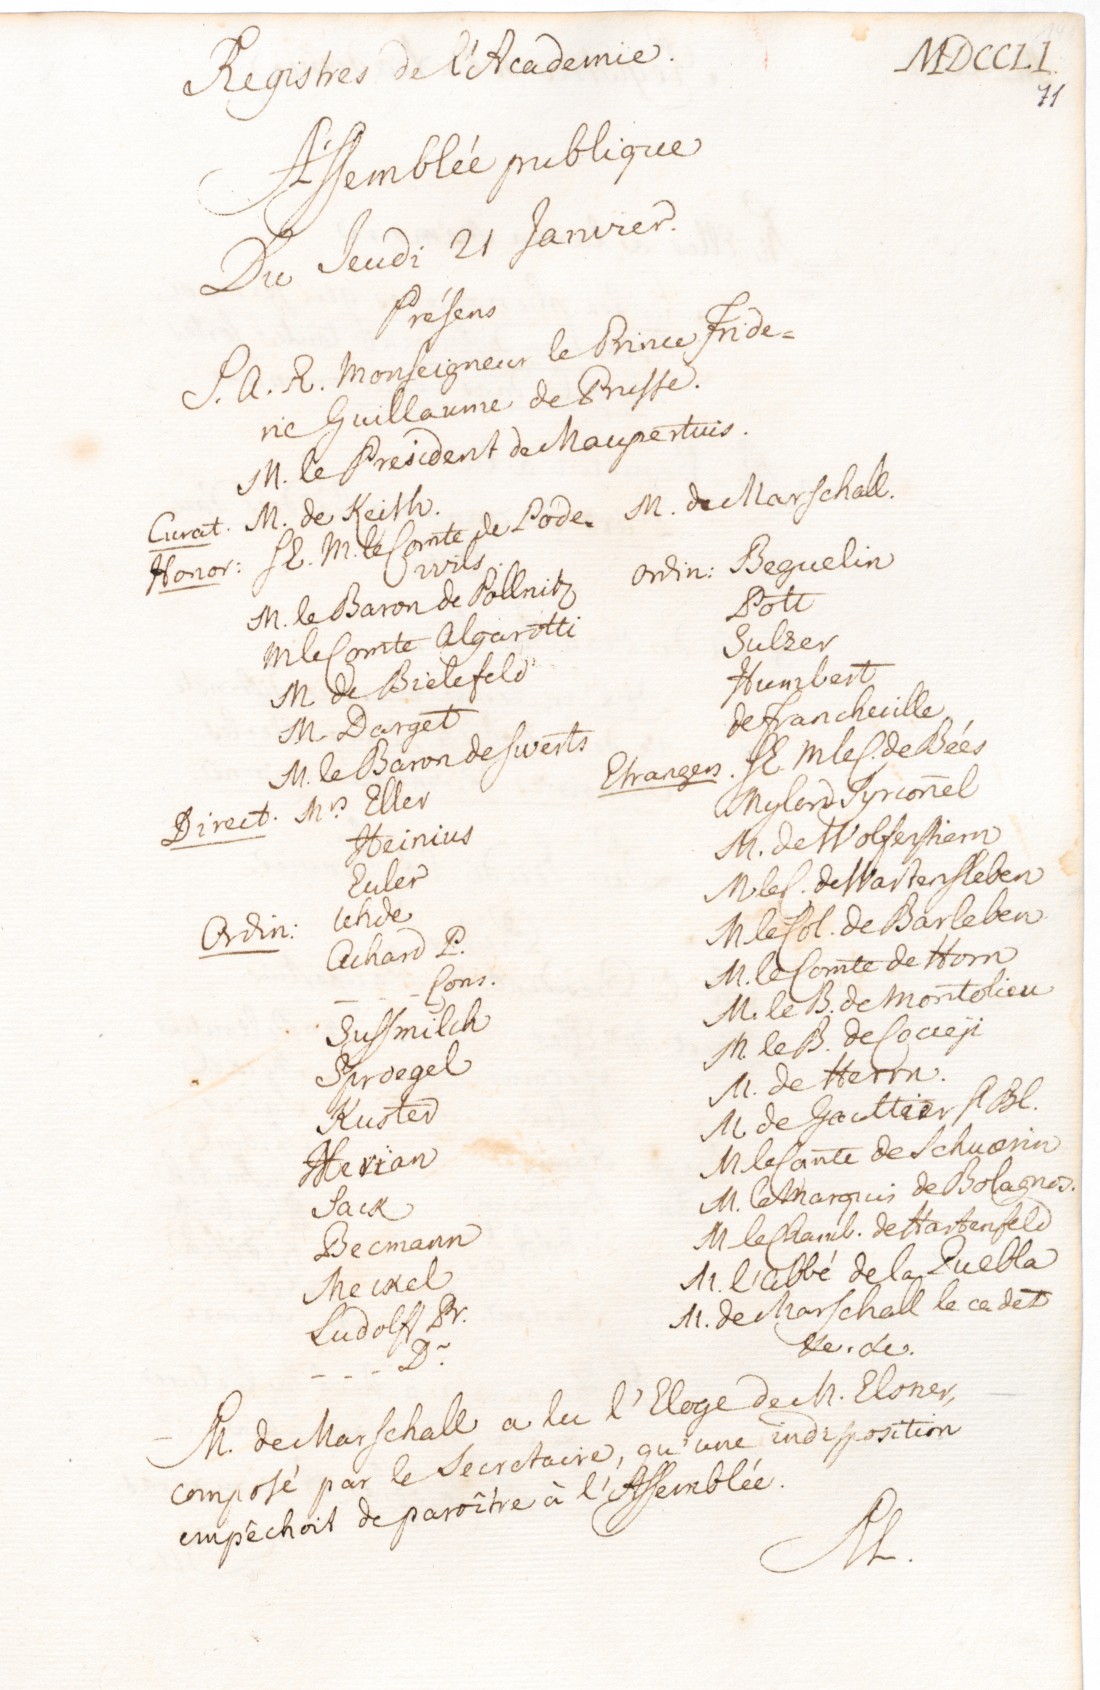 Registres de l'Academie.
MDCCLI.
71
Assemblée publique
Du Jeudi 21 Janvier.
Présens
S. A. R. Monseigneur le Prince Fride=
ric Guillaume de Prusse.
M. le President de Maupertuis.
Curat. M. de Keith.
Honor: S.E. M. le Comte de Pode=
wils
M. le Baron de Pollnitz
M le Comte Algarotti
M de Bielefeld
M. Darget
M. le Baron de Swerts
Direct. Mrs Eller
Heinius
Euler
Ordin: Uhde
Achard P.
- - - Cons.
Sussmilch
Sproegel
Kuster
Merian
Sack
Becmann
Meckel
Ludolff Pr.
- - - Dr
M. de Marschall.
Ordin: Beguelin
Pott
Sulzer
Humbert
de Francheville
Etrangers. S.E. M le C. de Bées
Mylord Tyrconel
M. de Wolfenstiern
M le C. de Wartensleben
M le Col. de Barleben
M. le Comte de Horn
M. le B. de Montolieu
M. le B. de Cocceji
M. de Herrn.
M. de Gaultier St Bl.
M le Comte de Schwerin
M. le Marquis de Bolagnos.
M le Chamb. de Hartenfeld
M. l'abbé de la Puebla
M. de Marschall le cadet
&c. &c.
M. de Marschall a lu l'Eloge de M. Elsner,
composé par le Secretaire, qu'une indisposition
empêchoit de paroître à l'Assemblée.